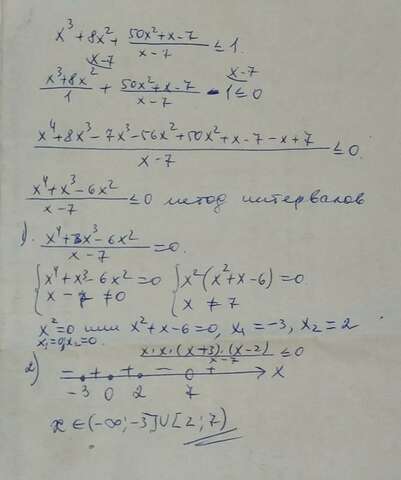 x³ + 8x² + (50x² + x - 7)/(x - 7) ≤ 1.
(x³ + 8x²)/1 (x-7) + (50x² + x - 7)/(x - 7) - 1 (x-7) ≤ 0
(x⁴ + 8x³ - 7x³ - 56x² + 50x² + x - 7 - x + 7)/(x - 7) ≤ 0.
(x⁴ + x³ - 6x²)/(x - 7) ≤ 0 метод интервалов
1). (x⁴ + x³ - 6x²)/(x - 7) = 0.
{ x⁴ + x³ - 6x² = 0 { x²(x² + x - 6) = 0
{ x - 7 ≠ 0 { x ≠ 7
x² = 0 или x² + x - 6 = 0, x₁ = -3, x₂ = 2
x₁ = 0, x₂ = 0.
2) (x·x·(x+3)·(x-2))/(x-7) ≤ 0
- + + - + x
-3 0 2 7
x ∈ (-∞; -3] ∪ [2; 7)